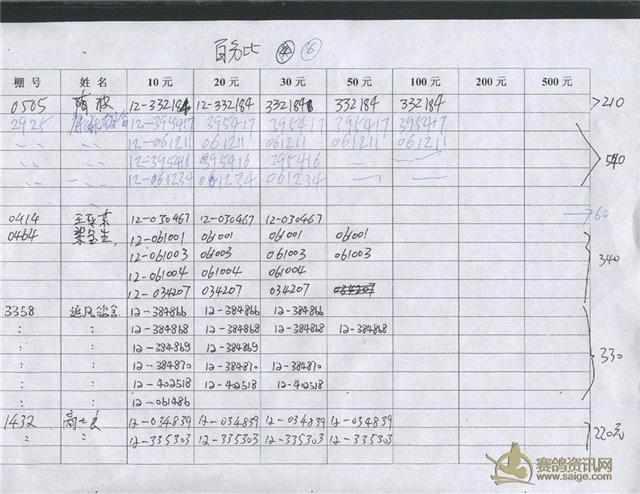 百分比 ④ ⑥
棚号 姓名 10元 20元 30元 50元 100元 200元 500元
0505 12-332184 12-332184 332184 332184 332184 >210
2925 12-395417 395417 395417 395417 395417
12-061211 061211 061211 061211 061211
12-395416 395416 395416 540
12-061234 061234 061234
0414 12-030467 12-030467 12-030467 60
0464 12-061001 061001 061001 061001
12-061003 061003 061003 061003 340
12-061004 061004 061004
12-034207 034207 034207 034207
3358 追风鸽舍 12-384866 12-384866 12-384866
12-384868 12-384868 12-384868 12-384868
12-384869 12-384869 330
12-384870 12-384870 12-384870
12-402518 12-402518 12-402518
12-061486
1432 12-034839 12-034839 12-034839 12-034839 220元
12-335303 12-335303 12-335303 12-335303
赛鸽资讯网
www.saige.com